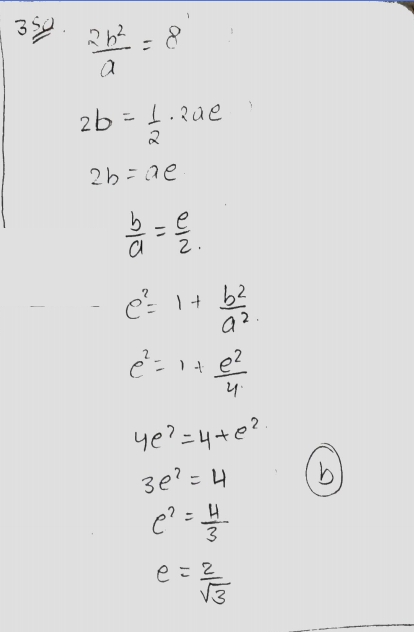 35Q. 2b²/a = 8
2b = 1/2 . 2ae
2b = ae
b/a = e/2.
e² = 1 + b²/a².
e² = 1 + e²/4.
4e² = 4 + e².
3e² = 4
(b)
e² = 4/3
e = 2/√3